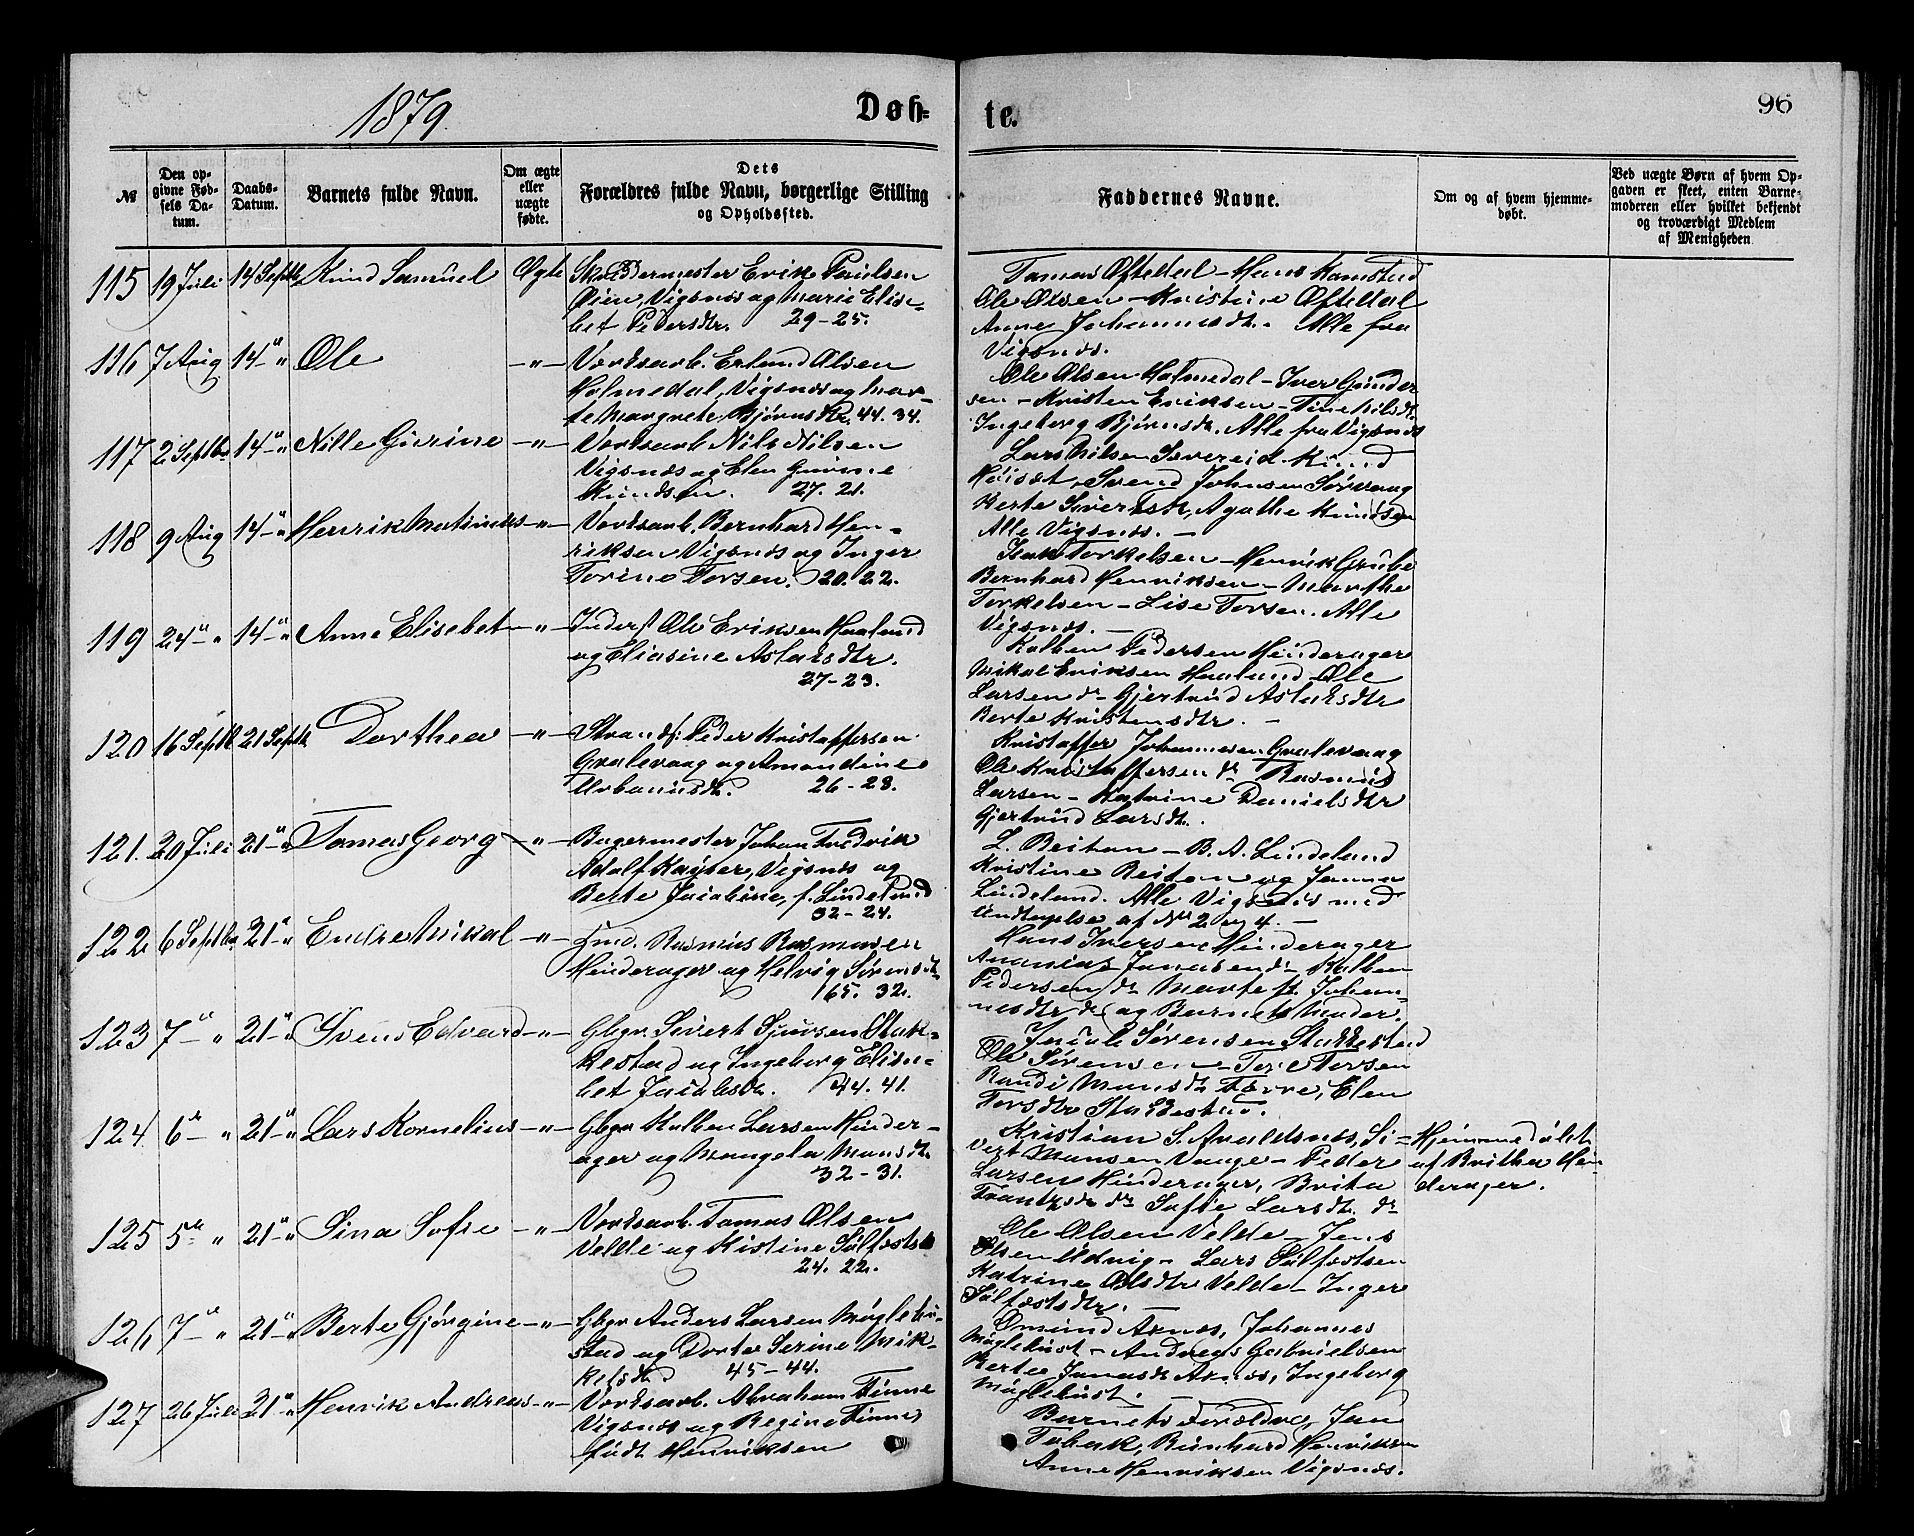 1879.
Døb=
te.
96
№
Den op=
givne Fød=
sels Da=
tum.
Daabs=
Datum.
Barnets fulde Navn.
Om ægte
eller
uægte
fødte.
Dets
Forældres fulde Navn, borgerlige Stilling
og Opholdssted.
Faddernes Navne.
Om og af hvem hjemme=
døbt.
Ved uægte Børn af hvem Op=
gaven er skeet, enten Barne=
moderen eller hvilket bekjendt
og troværdigt Medlem
af Menigheden
115 19 Juli 14 Septb Knud Samuel Ægte Skræddermester Erik Paulsen
Øien, Vigsnæs og Marie Elisa=
bet Pedersdtr. 29-25.
Tomas Oftedal - Hans Kamstad
Ole Olsen - Kristine Oftedal
Anne Johannesdtr. Alle fra
Vigsnæs.
116 7 Aug 14 - " Ole - " - Værksarb. Erlend Olsen
Holmedal, Vigsnæs og Mar=
te Margrete Bjørnsdtr. 44. 34.
Ole Olsen Holmedal - Iver Gunder
sen - Kristen Eriksen - Tine Nilsdt.
Ingeborg Bjørnsdtr. Alle fra Vigsnæs
117 2 Septbr 14 - " Nille Gurine - " - Værksarb Nils Nilsen
Vigsnæs og Elen Gurine
Knudsen. 27. 21.
Lars Nilsen Sævereid. Knud
Høisæt, Svend Johnsen Sørvaag
Berte Sivertsdtr, Agathe Knudsen
Alle Vigsnæs. -
118 9 Aug 14 - " Henrik Matinius - " - Værksarb. Bernhard Hen=
riksen Vigsnæs og Inger
Torine Torsen. 20. 22.
Isak Torkelsen - Henrik Grube
Bernhard Henriksen - Marthe
Torkelsen - Lise Torsen. Alle
Vigsnæs. -
119 24 - " 14 - " Anne Elisebet - " - Inderst Ole Eriksen Haaland
og Eliasine Aslaksdtr.
27-23.
Kolben Pedersen Hinderager
Mikal Eriksen Haaland - Ole
Larsen do Gjertrud Aslaksdtr
Berte Kristensdtr. -
120 16 Septb 21 Septb Dorthea - " - Strands. Peder Kristoffersen
Gvalevaag og Amandine
Urbanusdtr. 26-28.
Kristoffer Johannesen Gvalevaag
Ole Kristoffersen do Rasmus
Larsen - Katrine Danielsdtr
Gjertrud Larsdtr.
121. 20 Juli 21 - " Tomas Georg - " - Bagermester Johan Fredrik
Adolf Kayser, Vigsnæs og
Berte Jacobine, f. Lindeland
32-24.
L. Beiton - B. A. Lindeland
Kristine Beiton og Janna
Lindeland. Alle Vigsnæs med
Undtagelse af No 2 og 4. -
122 6 Septbr 21 - " Endre Mikal - " - Rasmus Rasmusen
Hinderager og Helvig Sørensdt.
65. 32.
Hans Iversen Hinderager
Ananias Jonasen do Kolben
Pedersen do Marte M. Johan=
nesdtr do og Barnets Moder.
123 7 - " 21 - " Svens Edvard - " - Gbgr. Sivert Sjursen Stak=
kestad og Ingeborg Elisa=
bet Jacobsdtr. 44. 41.
Jacob Sørensen Stakkestad
Ole Sørensen - Tore Torsen
Randi Monsdtr Førre, Elen
Torsdtr Stakkestad.
124. 6 - " 21 - " Lars Kornelius - " - Gbgr Kolben Larsen Hinder=
ager og Mangela Monsdtr.
32-31.
Kristian S. Avaldsnæs, Si=
vert Monsen Vaage - Peder
Larsen Hinderager, Brita
Frantzdtr do Sofie Larsdt. do
Hjemmedøbt
af Britha Hin
derager.
125 5 - " 21 - " Sina Sofie - " - Værksarb. Tomas Olsen
Velde og Kistine Sølfæstsd
24. 22.
Ole Olsen Velde - Jens
Olsen Udvig - Lars Sølfæstsen
Katrine Olsdtr Velde - Inger
Sølfæstsdtr. -
126 7 - " 21 - " Berte Gjørgine - " - Gbgr Anders Larsen Møglebu=
stad og Dorte Serine Mik=
kelsdtr 45-44.
Omund Aknæs, Johannes
Møglebust - Andreas Gabrielsen
Berte Jonasdt. Aknæs, Ingeborg
Møglebust. -
127 26 Juli 21 - " Henrik Andreas - " - Værksarb. Abraham Finne
Vigsnæs og Regine Finne,
født Henriksen
Barnets Forældre, Jan
Tabak, Bernhard Henriksen
Anne Henriksen Vigsnæs.